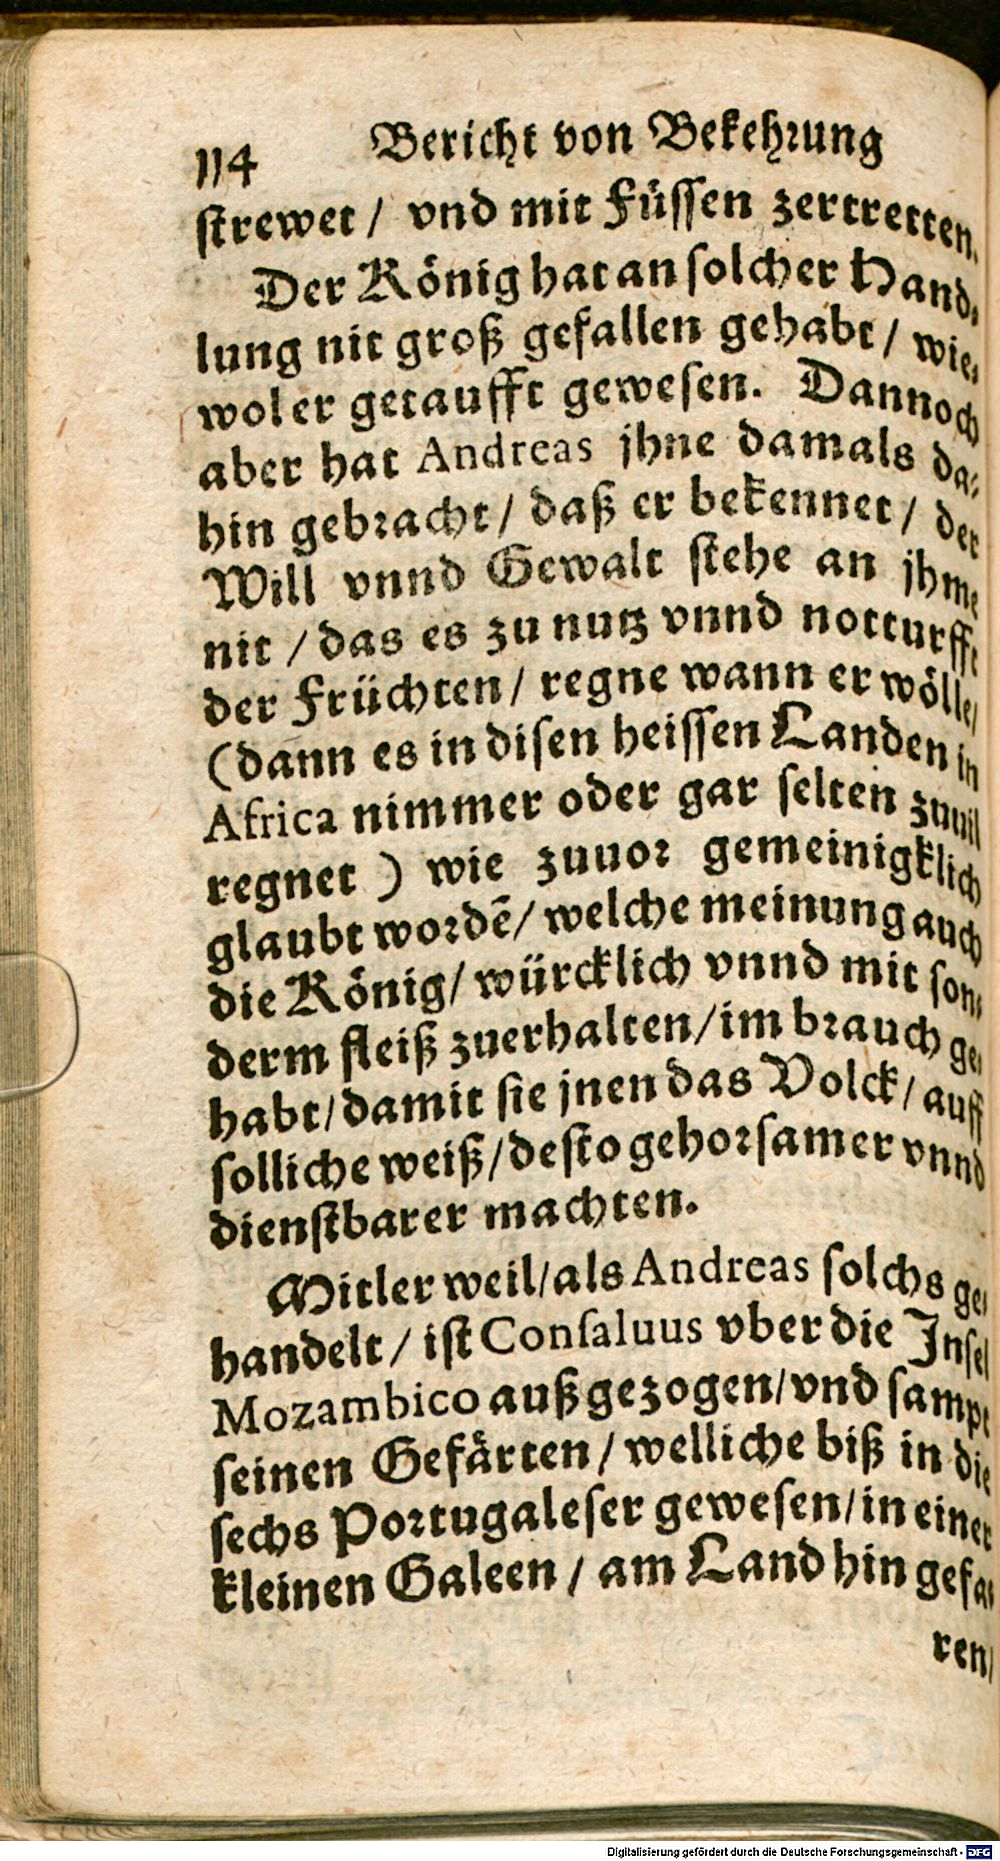 114 Bericht von Bekehrung
strewet / vnd mit Füssen zertretten.
Der König hat an solcher Hand-
lung nit groß gefallen gehabt / wie-
wol er getaufft gewesen. Dannoch
aber hat Andreas jhne damals da-
hin gebracht / daß er bekennet / der
Will vnnd Gewalt stehe an jhme
nit / das es zu nutz vnnd notturfft
der Früchten / regne wann er wölle /
(dann es in disen heissen Landen in
Africa nimmer oder gar selten zuuil
regnet ) wie zuuor gemeinigklich
glaubt wordē / welche meinung auch
die König / würcklich vnnd mit son-
derm fleiß zuerhalten / im brauch ge-
habt / damit sie jnen das Volck / auff
solliche weiß / desto gehorsamer vnnd
dienstbarer machten.
Mitler weil / als Andreas solchs ge-
handelt / ist Consaluus vber die Insel
Mozambico außgezogen / vnd sampt
seinen Gefärten / welliche biß in die
sechs Portugaleser gewesen / in einer
kleinen Galeen / am Land hin gefa-
ren /
Digitalisierung gefördert durch die Deutsche Forschungsgemeinschaft - DFG